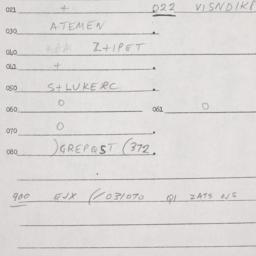 021 + 022 VISNDIKP
030 ATEMEN
040 Z+IPET
041 +
050 S+LUKERC
060 0 061 0
070 0
080 )GREPQST (372
900 EJX (/031070 QI ZATS NS